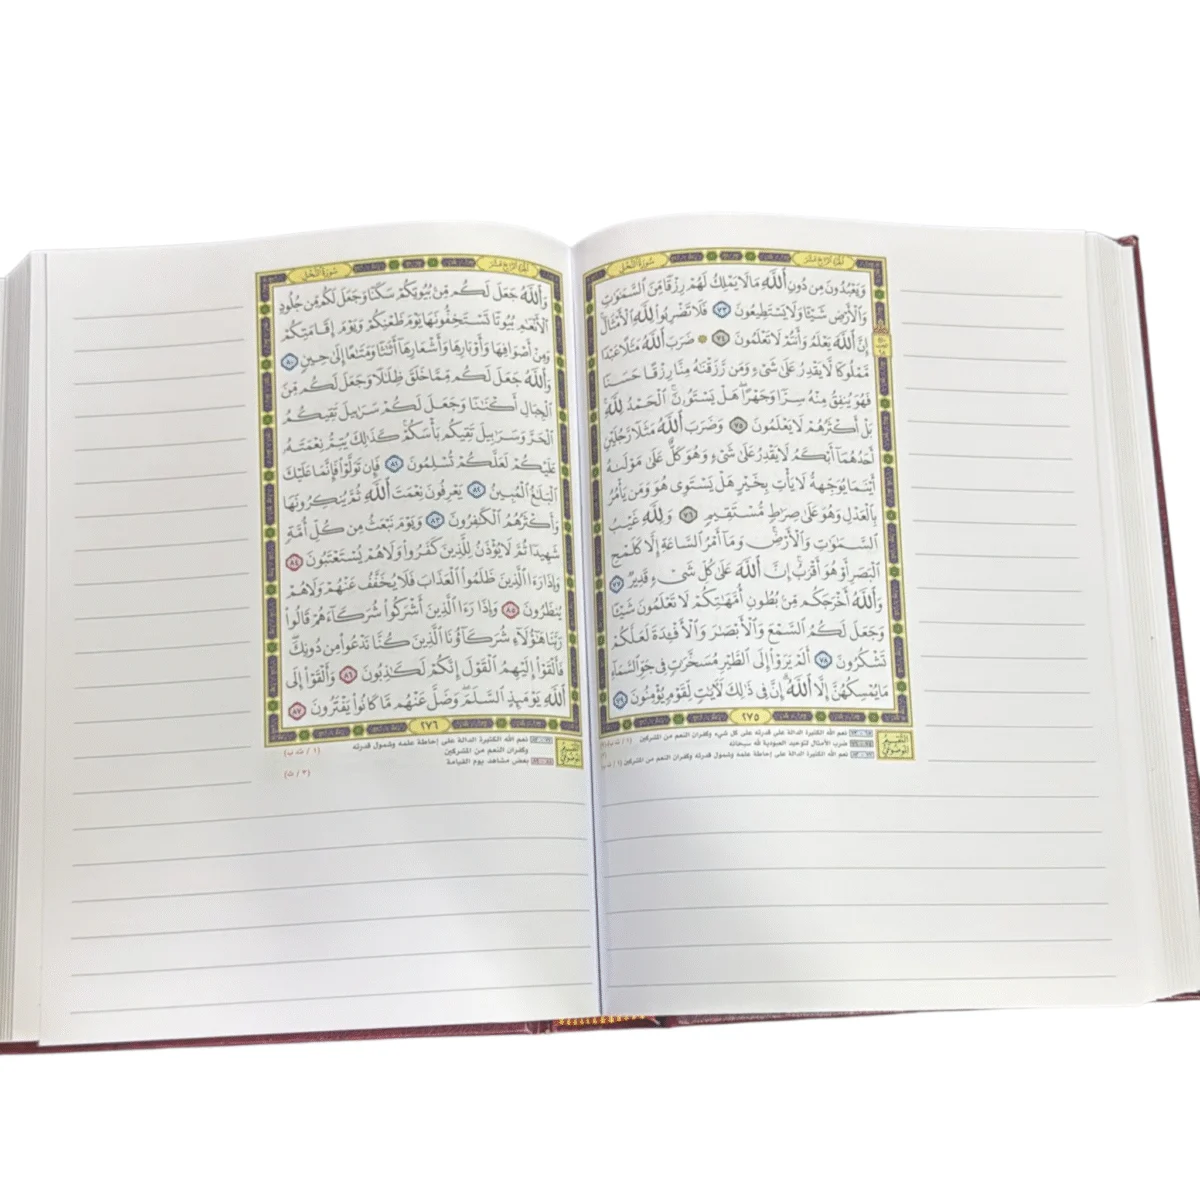 الجزء الرابع عشر
سورة النحل
وَيَعْبُدُونَ مِن دُونِ ٱللَّهِ مَا لَا يَمْلِكُ لَهُمْ رِزْقًا مِّنَ ٱلسَّمَٰوَٰتِ
وَٱلْأَرْضِ شَيْـًٔا وَلَا يَسْتَطِيعُونَ ٧٣ فَلَا تَضْرِبُوا۟ لِلَّهِ ٱلْأَمْثَالَ
إِنَّ ٱللَّهَ يَعْلَمُ وَأَنتُمْ لَا تَعْلَمُونَ ٧٤ ۞ ضَرَبَ ٱللَّهُ مَثَلًا عَبْدًا
مَّمْلُوكًا لَّا يَقْدِرُ عَلَىٰ شَىْءٍ وَمَن رَّزَقْنَٰهُ مِنَّا رِزْقًا حَسَنًا
فَهُوَ يُنفِقُ مِنْهُ سِرًّا وَجَهْرًا ۖ هَلْ يَسْتَوُۥنَ ۚ ٱلْحَمْدُ لِلَّهِ ۚ
بَلْ أَكْثَرُهُمْ لَا يَعْلَمُونَ ٧٥ وَضَرَبَ ٱللَّهُ مَثَلًا رَّجُلَيْنِ
أَحَدُهُمَآ أَبْكَمُ لَا يَقْدِرُ عَلَىٰ شَىْءٍ وَهُوَ كَلٌّ عَلَىٰ مَوْلَىٰهُ
أَيْنَمَا يُوَجِّههُّ لَا يَأْتِ بِخَيْرٍ ۖ هَلْ يَسْتَوِى هُوَ وَمَن يَأْمُرُ
بِٱلْعَدْلِ ۙ وَهُوَ عَلَىٰ صِرَٰطٍ مُّسْتَقِيمٍ ٧٦ وَلِلَّهِ غَيْبُ
ٱلسَّمَٰوَٰتِ وَٱلْأَرْضِ ۚ وَمَآ أَمْرُ ٱلسَّاعَةِ إِلَّا كَلَمْحِ
ٱلْبَصَرِ أَوْ هُوَ أَقْرَبُ ۚ إِنَّ ٱللَّهَ عَلَىٰ كُلِّ شَىْءٍ قَدِيرٌ ٧٧
وَٱللَّهُ أَخْرَجَكُم مِّنۢ بُطُونِ أُمَّهَٰتِكُمْ لَا تَعْلَمُونَ شَيْـًٔا
وَجَعَلَ لَكُمُ ٱلسَّمْعَ وَٱلْأَبْصَٰرَ وَٱلْأَفْـِٔدَةَ ۙ لَعَلَّكُمْ
تَشْكُرُونَ ٧٨ أَلَمْ يَرَوْا۟ إِلَى ٱلطَّيْرِ مُسَخَّرَٰتٍ فِى جَوِّ ٱلسَّمَآءِ
مَا يُمْسِكُهُنَّ إِلَّا ٱللَّهُ ۗ إِنَّ فِى ذَٰلِكَ لَءَايَٰتٍ لِّقَوْمٍ يُؤْمِنُونَ ٧٩
٢٧٥
التقسيم الموضوعي
نعم الله الكثيرة الدالة على قدرته على كل شيء وكفران النعم من المشركين
ضرب الأمثال لتوحيد العبودية لله سبحانه
نعم الله الكثيرة الدالة على إحاطة علمه وشمول قدرته وكفران النعم من المشركين
الجزء الرابع عشر
سورة النحل
وَٱللَّهُ جَعَلَ لَكُم مِّنۢ بُيُوتِكُمْ سَكَنًا وَجَعَلَ لَكُم مِّن جُلُودِ
ٱلْأَنْعَٰمِ بُيُوتًا تَسْتَخِفُّونَهَا يَوْمَ ظَعْنِكُمْ وَيَوْمَ إِقَامَتِكُمْ ۙ
وَمِنْ أَصْوَافِهَا وَأَوْبَارِهَا وَأَشْعَارِهَآ أَثَٰثًا وَمَتَٰعًا إِلَىٰ حِينٍ ٨٠
وَٱللَّهُ جَعَلَ لَكُم مِّمَّا خَلَقَ ظِلَٰلًا وَجَعَلَ لَكُم مِّنَ
ٱلْجِبَالِ أَكْنَٰنًا وَجَعَلَ لَكُمْ سَرَٰبِيلَ تَقِيكُمُ
ٱلْحَرَّ وَسَرَٰبِيلَ تَقِيكُم بَأْسَكُمْ ۚ كَذَٰلِكَ يُتِمُّ نِعْمَتَهُۥ
عَلَيْكُمْ لَعَلَّكُمْ تُسْلِمُونَ ٨١ فَإِن تَوَلَّوْا۟ فَإِنَّمَا عَلَيْكَ
ٱلْبَلَٰغُ ٱلْمُبِينُ ٨٢ يَعْرِفُونَ نِعْمَتَ ٱللَّهِ ثُمَّ يُنكِرُونَهَا
وَأَكْثَرُهُمُ ٱلْكَٰفِرُونَ ٨٣ وَيَوْمَ نَبْعَثُ مِن كُلِّ أُمَّةٍ
شَهِيدًا ثُمَّ لَا يُؤْذَنُ لِلَّذِينَ كَفَرُوا۟ وَلَا هُمْ يُسْتَعْتَبُونَ ٨٤
وَإِذَا رَءَا ٱلَّذِينَ ظَلَمُوا۟ ٱلْعَذَابَ فَلَا يُخَفَّفُ عَنْهُمْ وَلَا هُمْ
يُنظَرُونَ ٨٥ وَإِذَا رَءَا ٱلَّذِينَ أَشْرَكُوا۟ شُرَكَآءَهُمْ قَالُوا۟
رَبَّنَا هَٰٓؤُلَآءِ شُرَكَآؤُنَا ٱلَّذِينَ كُنَّا نَدْعُوا۟ مِن دُونِكَ ۖ
فَأَلْقَوْا۟ إِلَيْهِمُ ٱلْقَوْلَ إِنَّكُمْ لَكَٰذِبُونَ ٨٦ وَأَلْقَوْا۟ إِلَى
ٱللَّهِ يَوْمَئِذٍ ٱلسَّلَمَ ۖ وَضَلَّ عَنْهُم مَّا كَانُوا۟ يَفْتَرُونَ ٨٧
٢٧٦
التقسيم الموضوعي
نعم الله الكثيرة الدالة على إحاطة علمه وشمول قدرته
وكفران النعم من المشركين
بعض مشاهد يوم القيامة